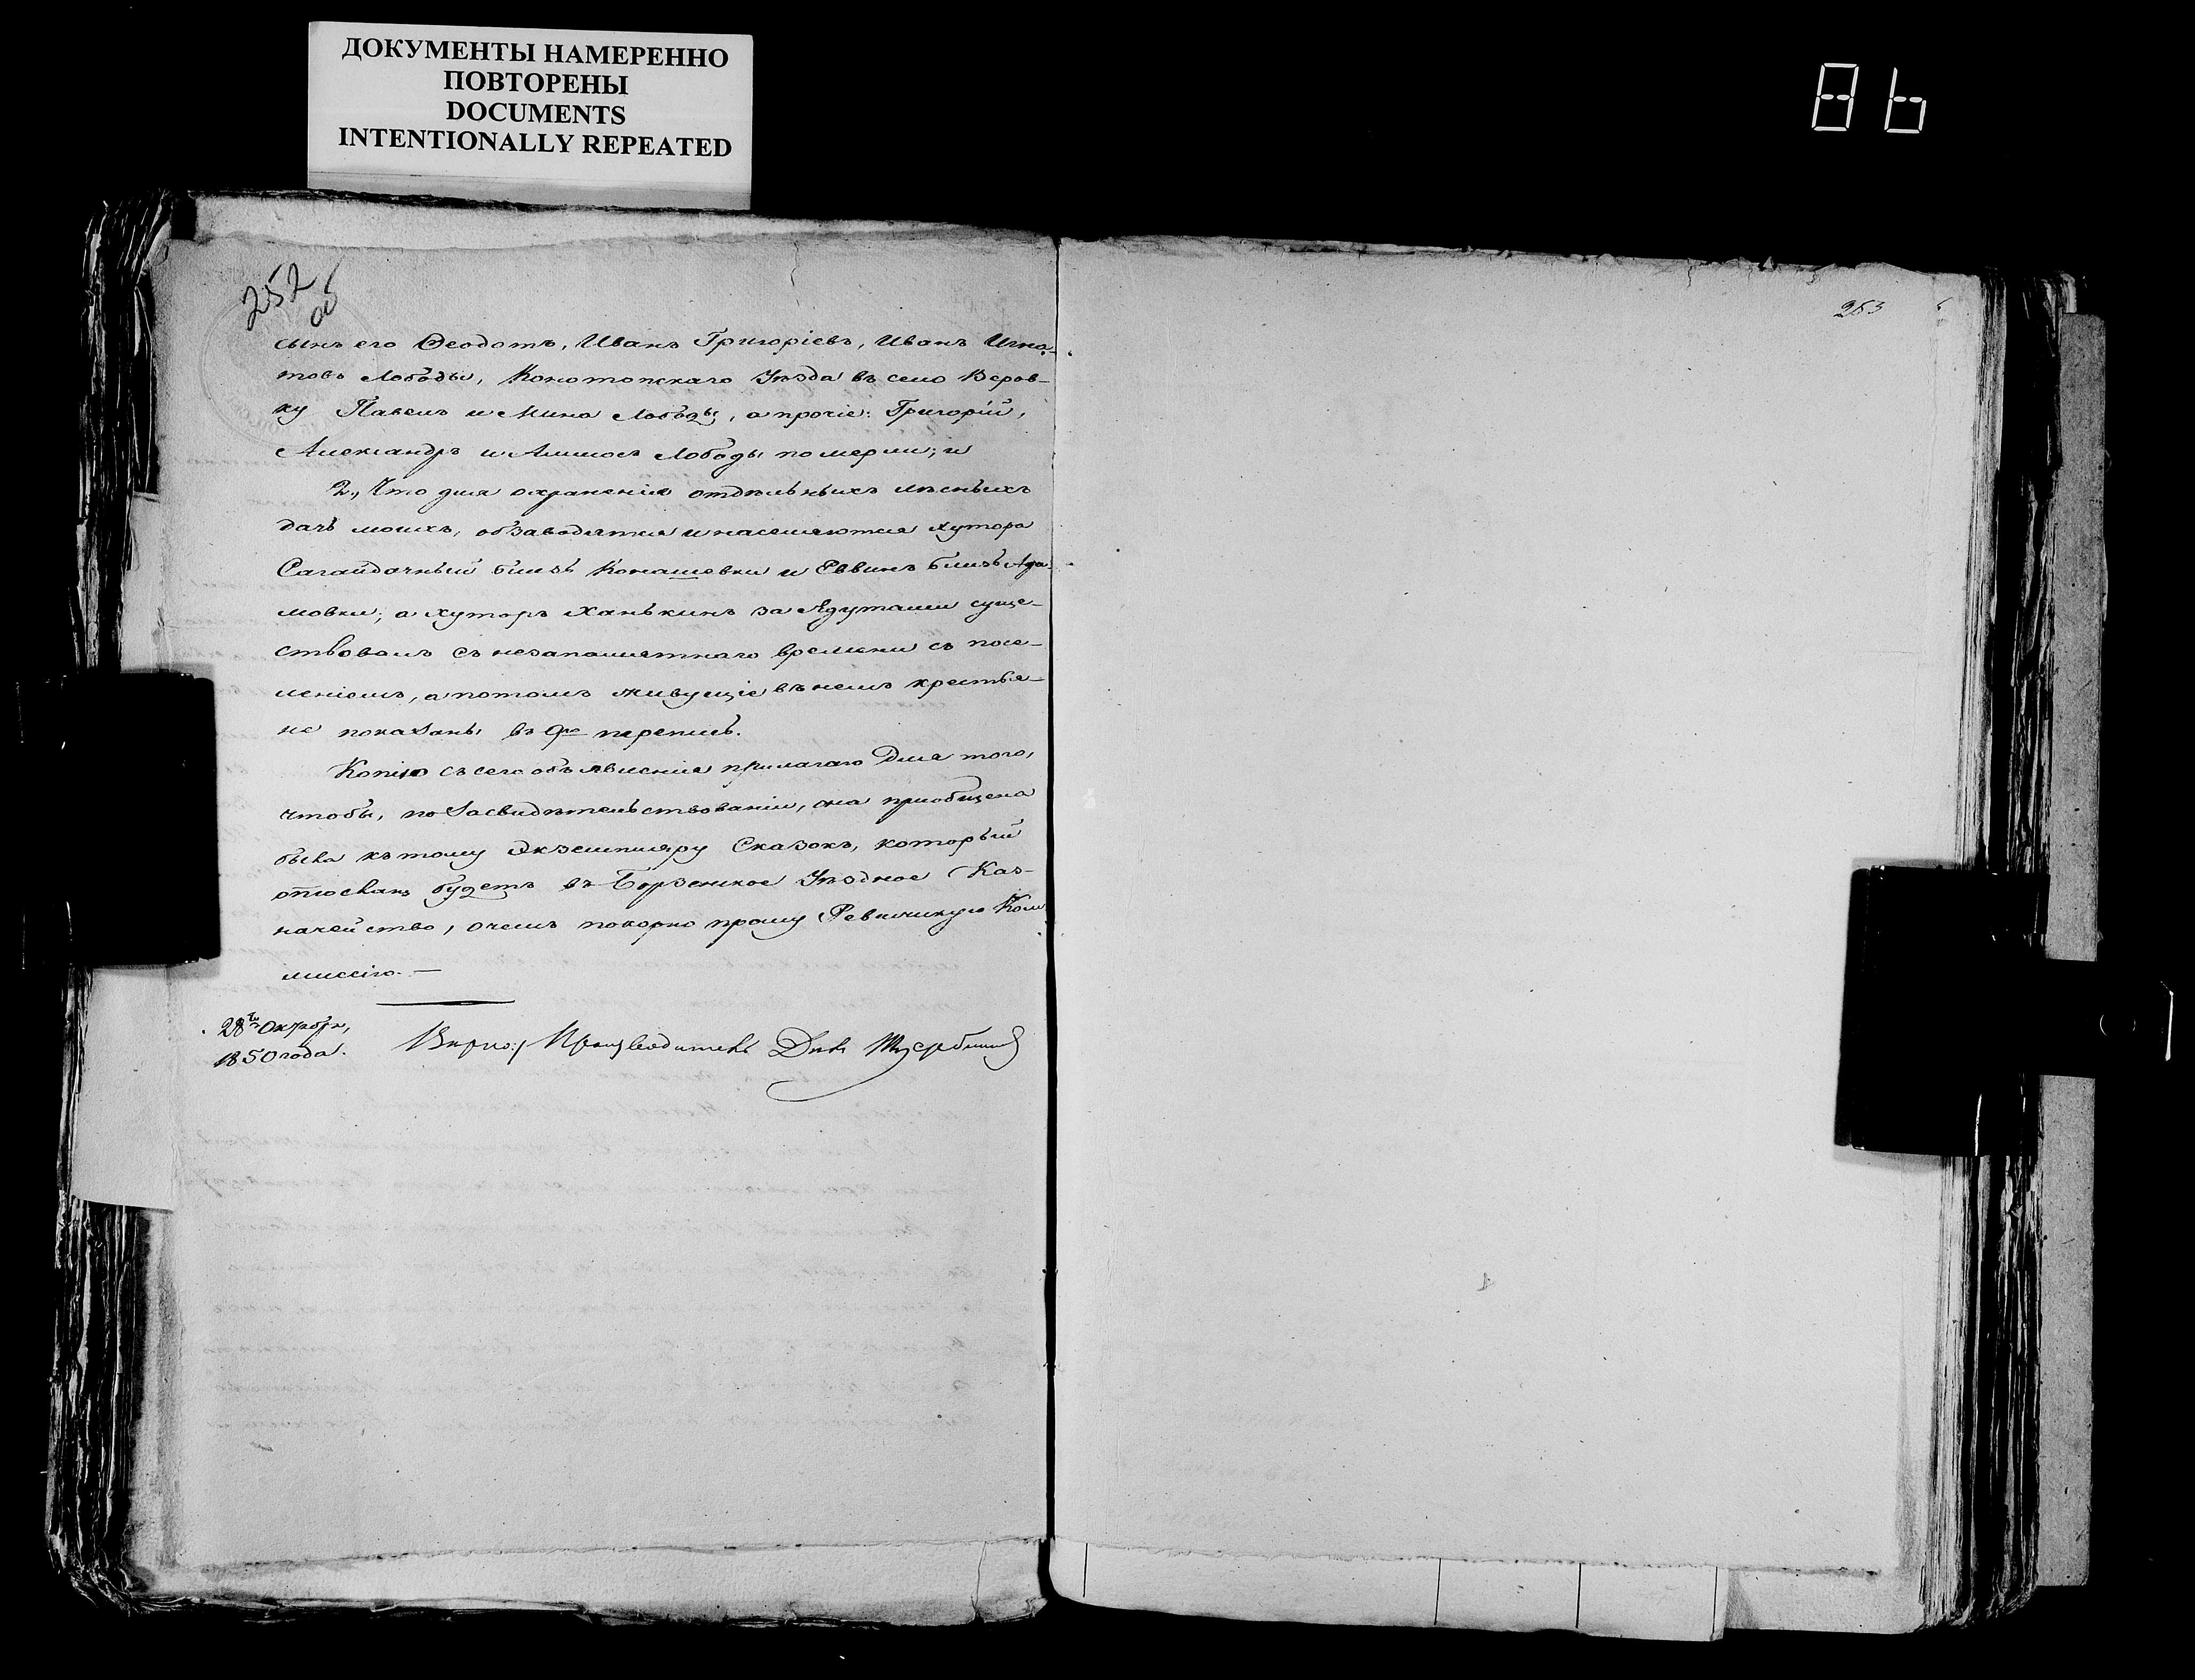 ДОКУМЕНТЫ НАМЕРЕННО
ПОВТОРЕНЫ
DOCUMENTS
INTENTIONALLY REPEATED
252
об
253
сынъ его Ѳеодотъ, Иванъ Григоріевъ, Иванъ Игна-
товъ Лободы, Конотопскаго Уѣзда въ село Веров-
ку Павелъ и Мина Лободы, а прочіе: Григорій,
Александръ и Лободы померли; и
2., Что для охраненія отдѣльныхъ лѣсныхъ
дачъ моихъ, обзаводятся и населяются хутора
Сагайдачный близь Конашовки и Еввинъ близь Ада-
мовки; а хуторъ Ханькинъ за Ядутами суще-
ствовалъ съ незапамятнаго времени съ посе-
леніемъ, а потомъ живущіе въ немъ крестья-
не показаны въ 9ю перепись.
Копію съ сего объявленія прилагаю для того,
чтобы, по засвидѣтельствованіи, она пріобщена
была къ тому Экземпляру Сказокъ, который
отосланъ будетъ въ Борзенское Уѣздное Каз-
начейство, о чемъ покорно прошу Ревизскую Ком
миссію. —
28го Октября,
1850 года.
Вѣрно: Производитель Дѣлъ